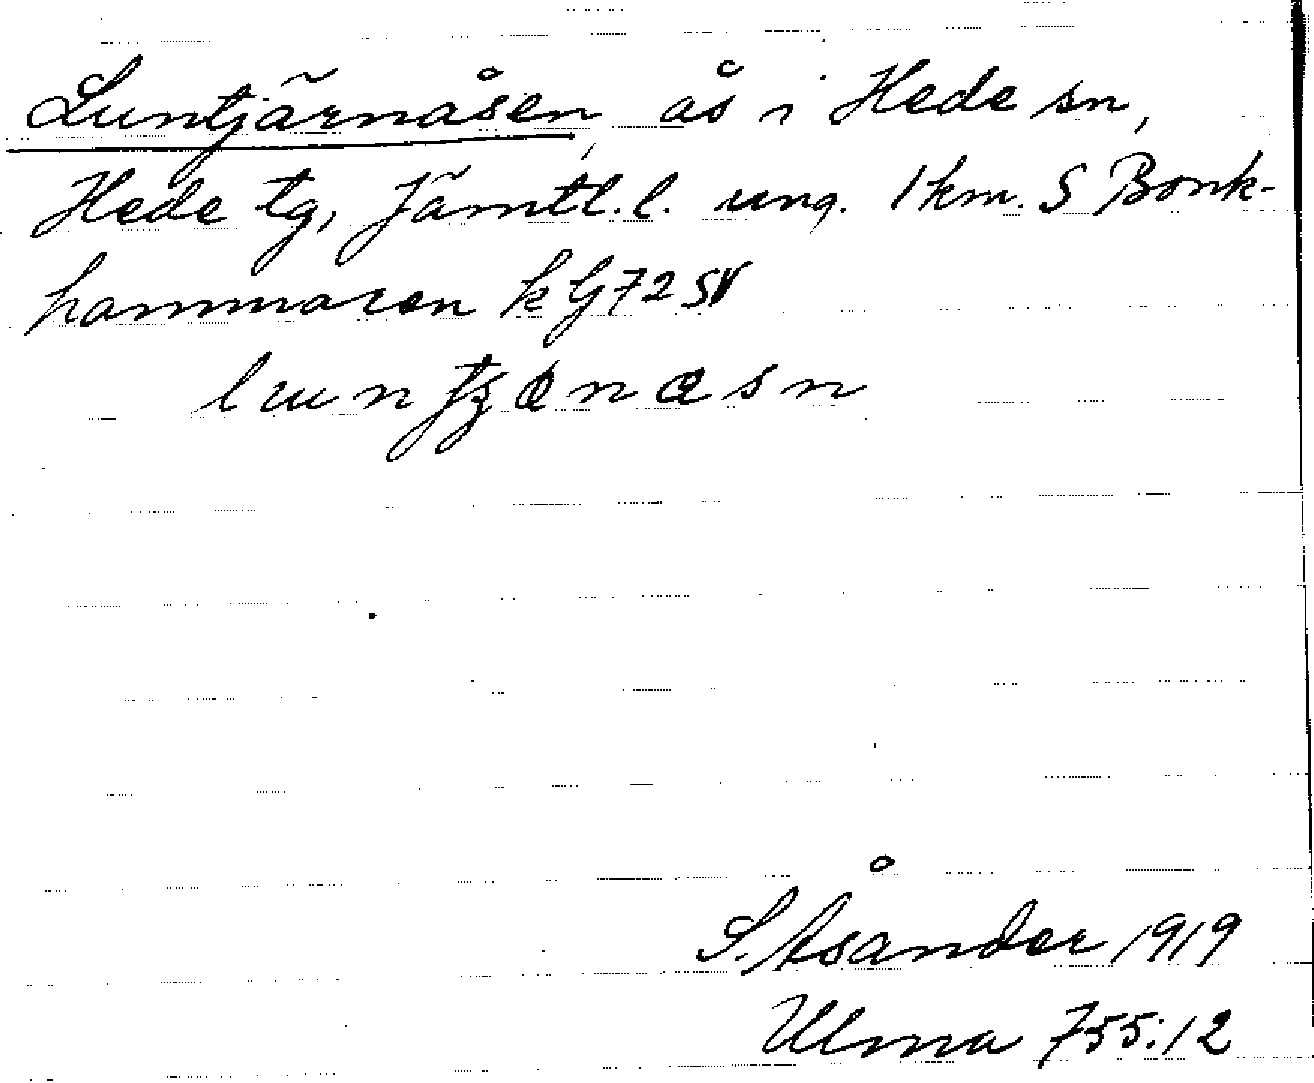 Luntjärnåsen, ås i Hede sn,
Hede tg, Jämtl. l. ung. 1 km. S Bonk-
hammaren k Gj 72 SV
S. Åsander 1919
Ulma 755:12